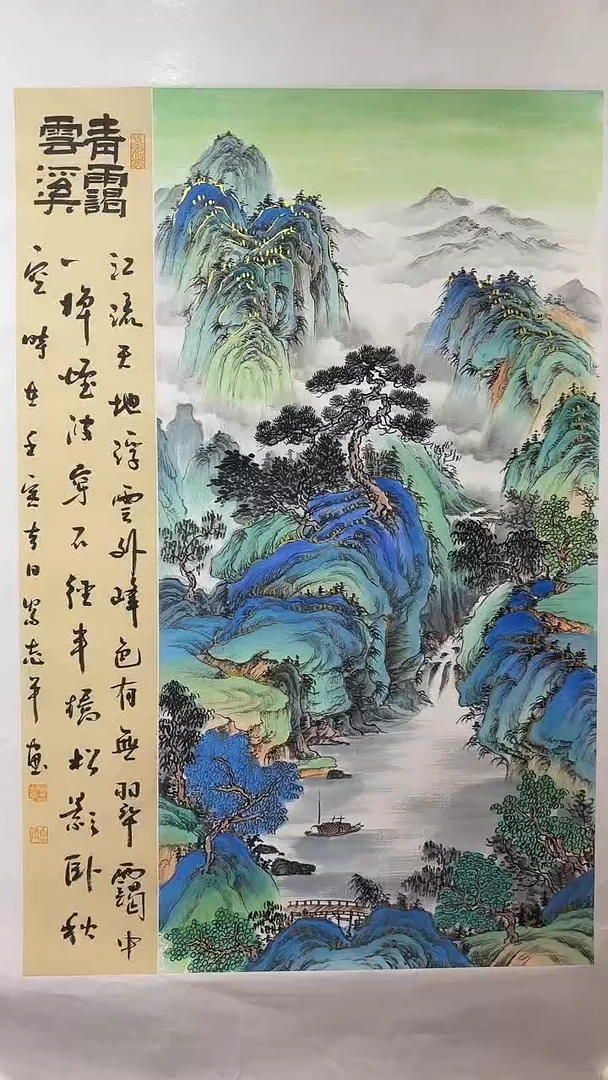 青靄
雲溪
江流天地浮雲外峰色有無翠靄中
一棹煙波穿石徑半橋松影卧秋
空時在壬寅春日志平畫